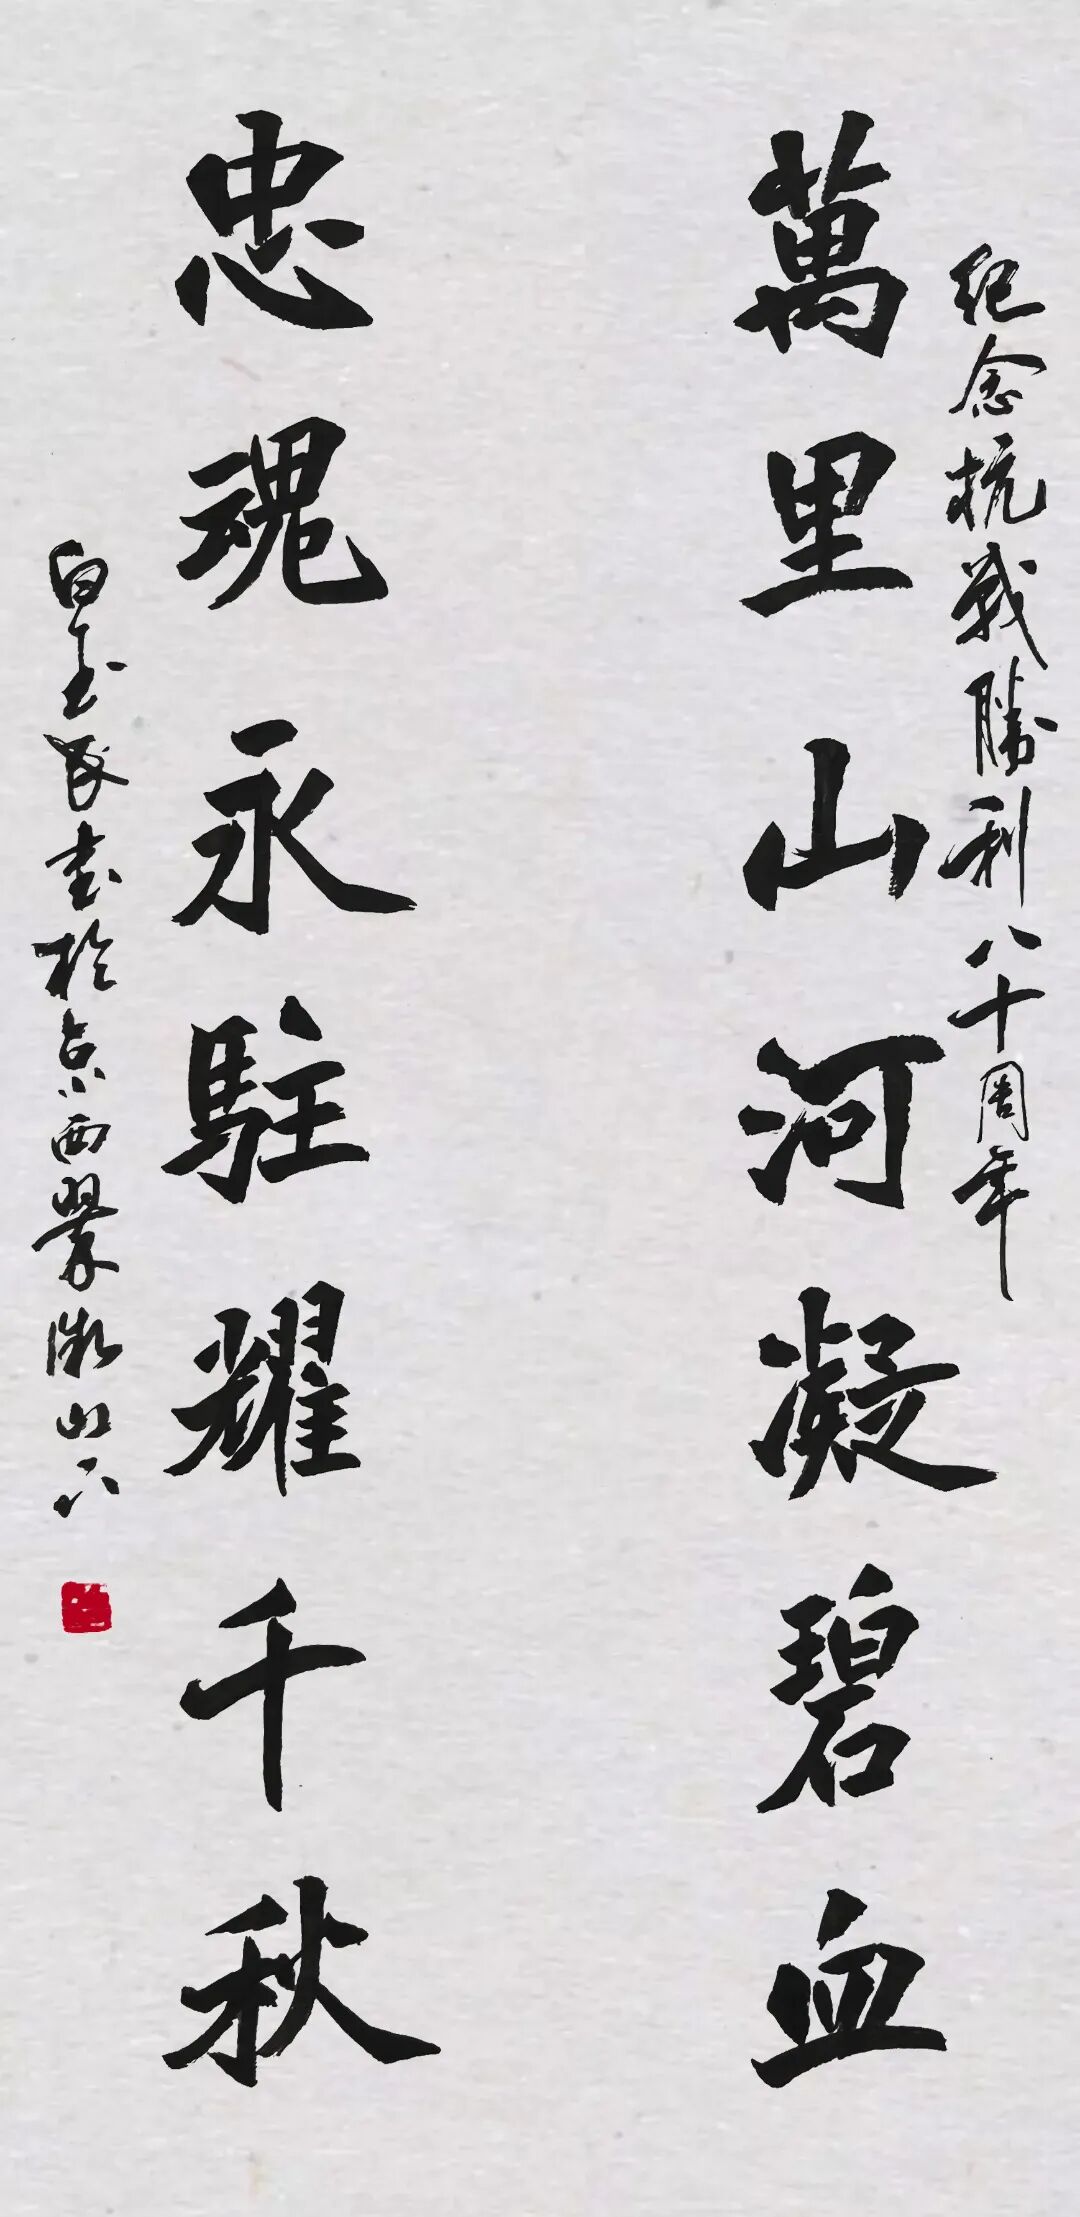 紀念抗戰勝利八十周年
萬里山河凝碧血
忠魂永駐耀千秋
白玉民书於京西翠微山下